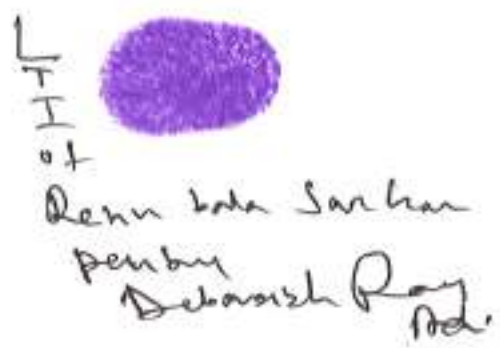 L
T
I
of
Renu bala Sarkar
pen by
Debasish Ray
Adv.